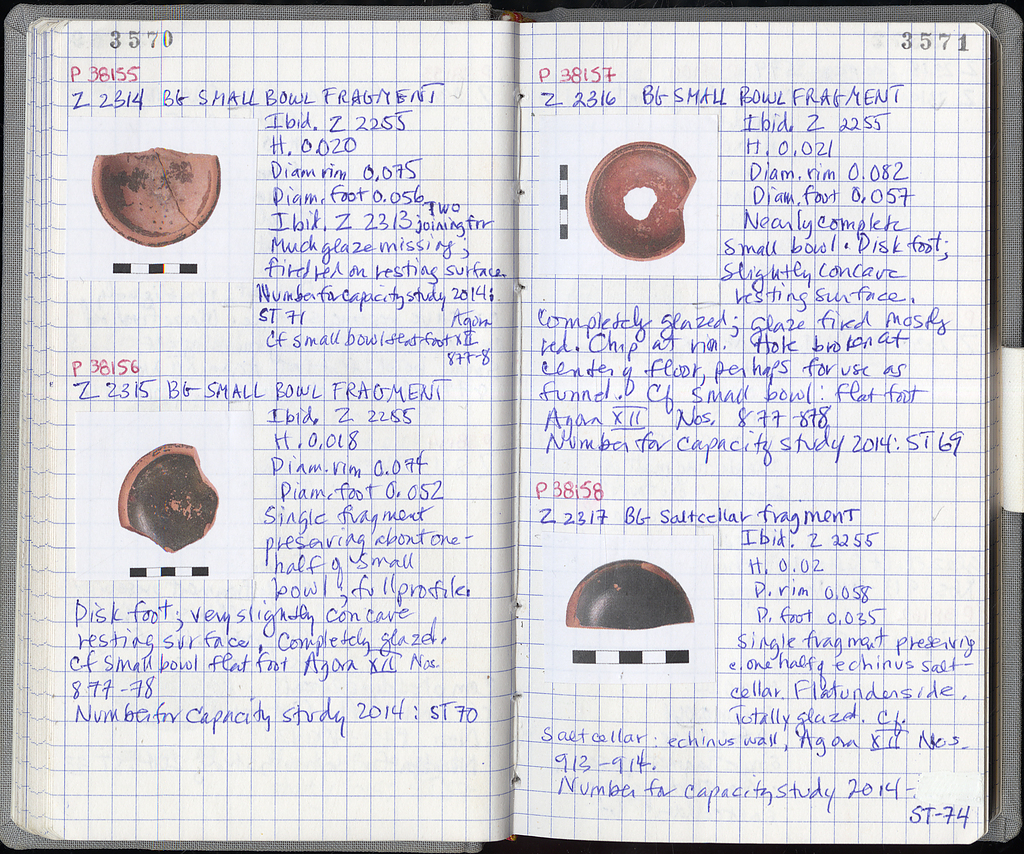 3570
P 38155
Z 2314 BG SMALL BOWL FRAGMENT
Ibid. Z 2255
H. 0.020
Diam rim 0.075
Diam. foot 0.056
Ibid. Z 2313 Two joining fr
Much glaze missing;
fired red on resting surface.
Number for capacity study 2014:
ST 71
Cf small bowl flat foot Agora XII
877-8
P 38156
Z 2315 BG SMALL BOWL FRAGMENT
Ibid. Z 2255
H. 0.018
Diam. rim 0.074
Diam. foot 0.052
Single fragment
preserving about one-
half of small
bowl; full profile.
Disk foot; very slightly concave
resting surface. Completely glazed.
Cf small bowl flat foot Agora XII Nos.
877-78
Number for capacity study 2014: ST70
3571
P 38157
Z 2316 BG SMALL BOWL FRAGMENT
Ibid. Z 2255
H. 0.021
Diam. rim 0.082
Diam. foot 0.057
Nearly complete
small bowl. Disk foot;
slightly concave
resting surface.
Completely glazed; glaze fired mostly
red. Chip at rim. Hole broken at
center of floor, perhaps for use as
funnel. Cf small bowl: flat foot
Agora XII Nos. 877-878
Number for capacity study 2014: ST69
P 38158
Z 2317 BG Saltcellar fragment
Ibid. Z 2255
H. 0.02
D. rim 0.058
D. foot 0.035
Single fragment preserving
one half of echinus salt-
cellar. Flat underside.
Totally glazed. Cf.
Saltcellar: echinus wall, Agora XII Nos.
913-914.
Number for capacity study 2014-
ST-74